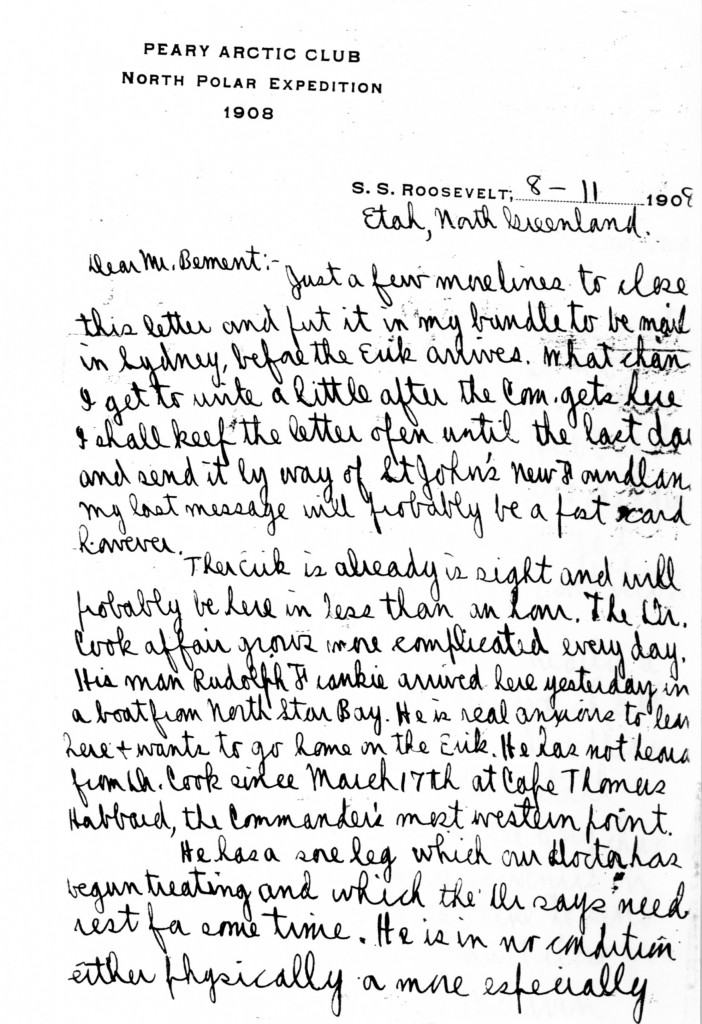 PEARY ARCTIC CLUB
NORTH POLAR EXPEDITION
1908
S. S. ROOSEVELT, 8 – 11 1908
Etah, North Greenland.
Dear Mr. Bement:-
Just a few more lines to close
this letter and put it in my bundle to be mail
in Sydney, before the Erik arrives. What chan
I get to write a little after the Com. gets here
I shall keep the letter open until the last da
and send it by way of St John's New Foundlan
my last message will probably be a post card
however.
The Erik is already is sight and will
probably be here in less than an hour. The Dr.
Cook affair grows more complicated every day.
His man Rudolph Frankie arrived here yesterday in
a boat from North Star Bay. He is real anxious to leav
here + wants to go home on the Erik. He has not hear
from Dr. Cook since March 17th at Cape Thomas
Habbard, the Commander's most western point.
He has a sore leg which our Doctor has
begun treating and which the Dr says need
rest for some time. He is in no condition
either physically or more especially